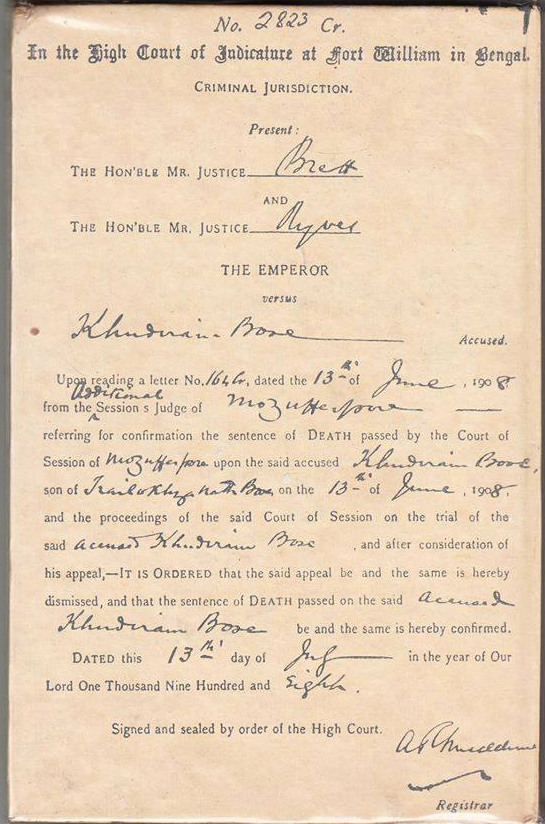 No. 2823 Cr.
In the High Court of Judicature at Fort William in Bengal.
CRIMINAL JURISDICTION.
Present:
THE HON'BLE MR. JUSTICE Brett
AND
THE HON'BLE MR. JUSTICE Ryves
THE EMPEROR
versus
Khudiram Bose
Accused.
Upon reading a letter No. 164 Cr, dated the 13th of June, 1908
Additional
from the Sessions Judge of Mozufferpore
referring for confirmation the sentence of DEATH passed by the Court of
Session of Mozufferpore upon the said accused Khudiram Bose,
son of Trailokhya Nath Bose on the 13th of June, 1908,
and the proceedings of the said Court of Session on the trial of the
said accused Khudiram Bose, and after consideration of
his appeal,—IT IS ORDERED that the said appeal be and the same is hereby
dismissed, and that the sentence of DEATH passed on the said accused
Khudiram Bose be and the same is hereby confirmed.
DATED this 13th day of July in the year of Our
Lord One Thousand Nine Hundred and Eight.
Signed and sealed by order of the High Court.
Registrar